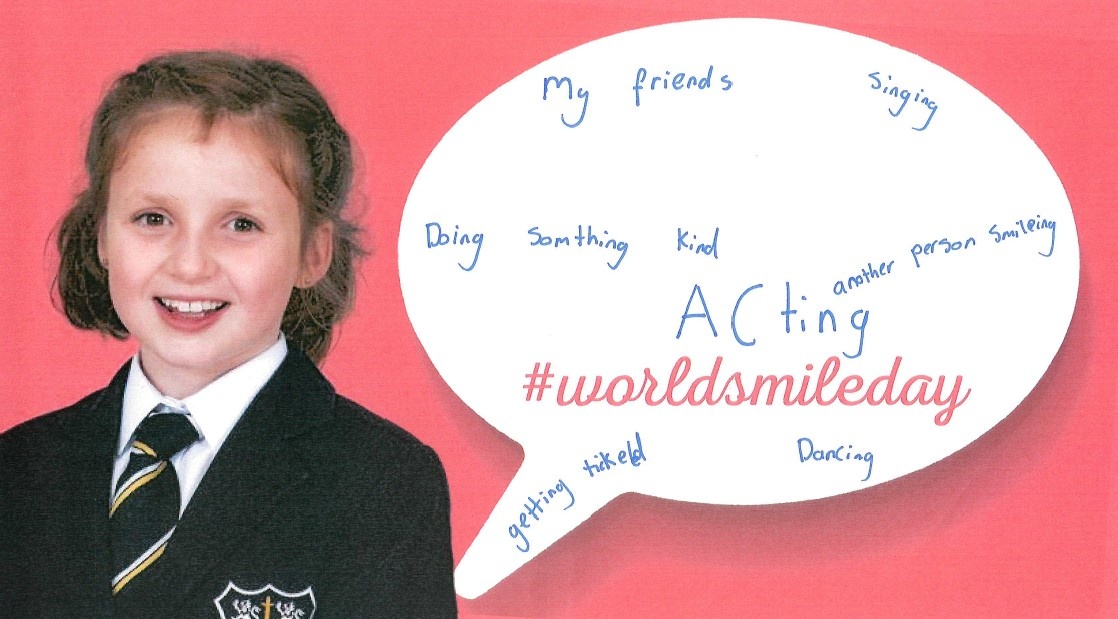 My friends
Singing
Doing somthing kind
another person smileing
ACting
#worldsmileday
getting tickeld
Dancing